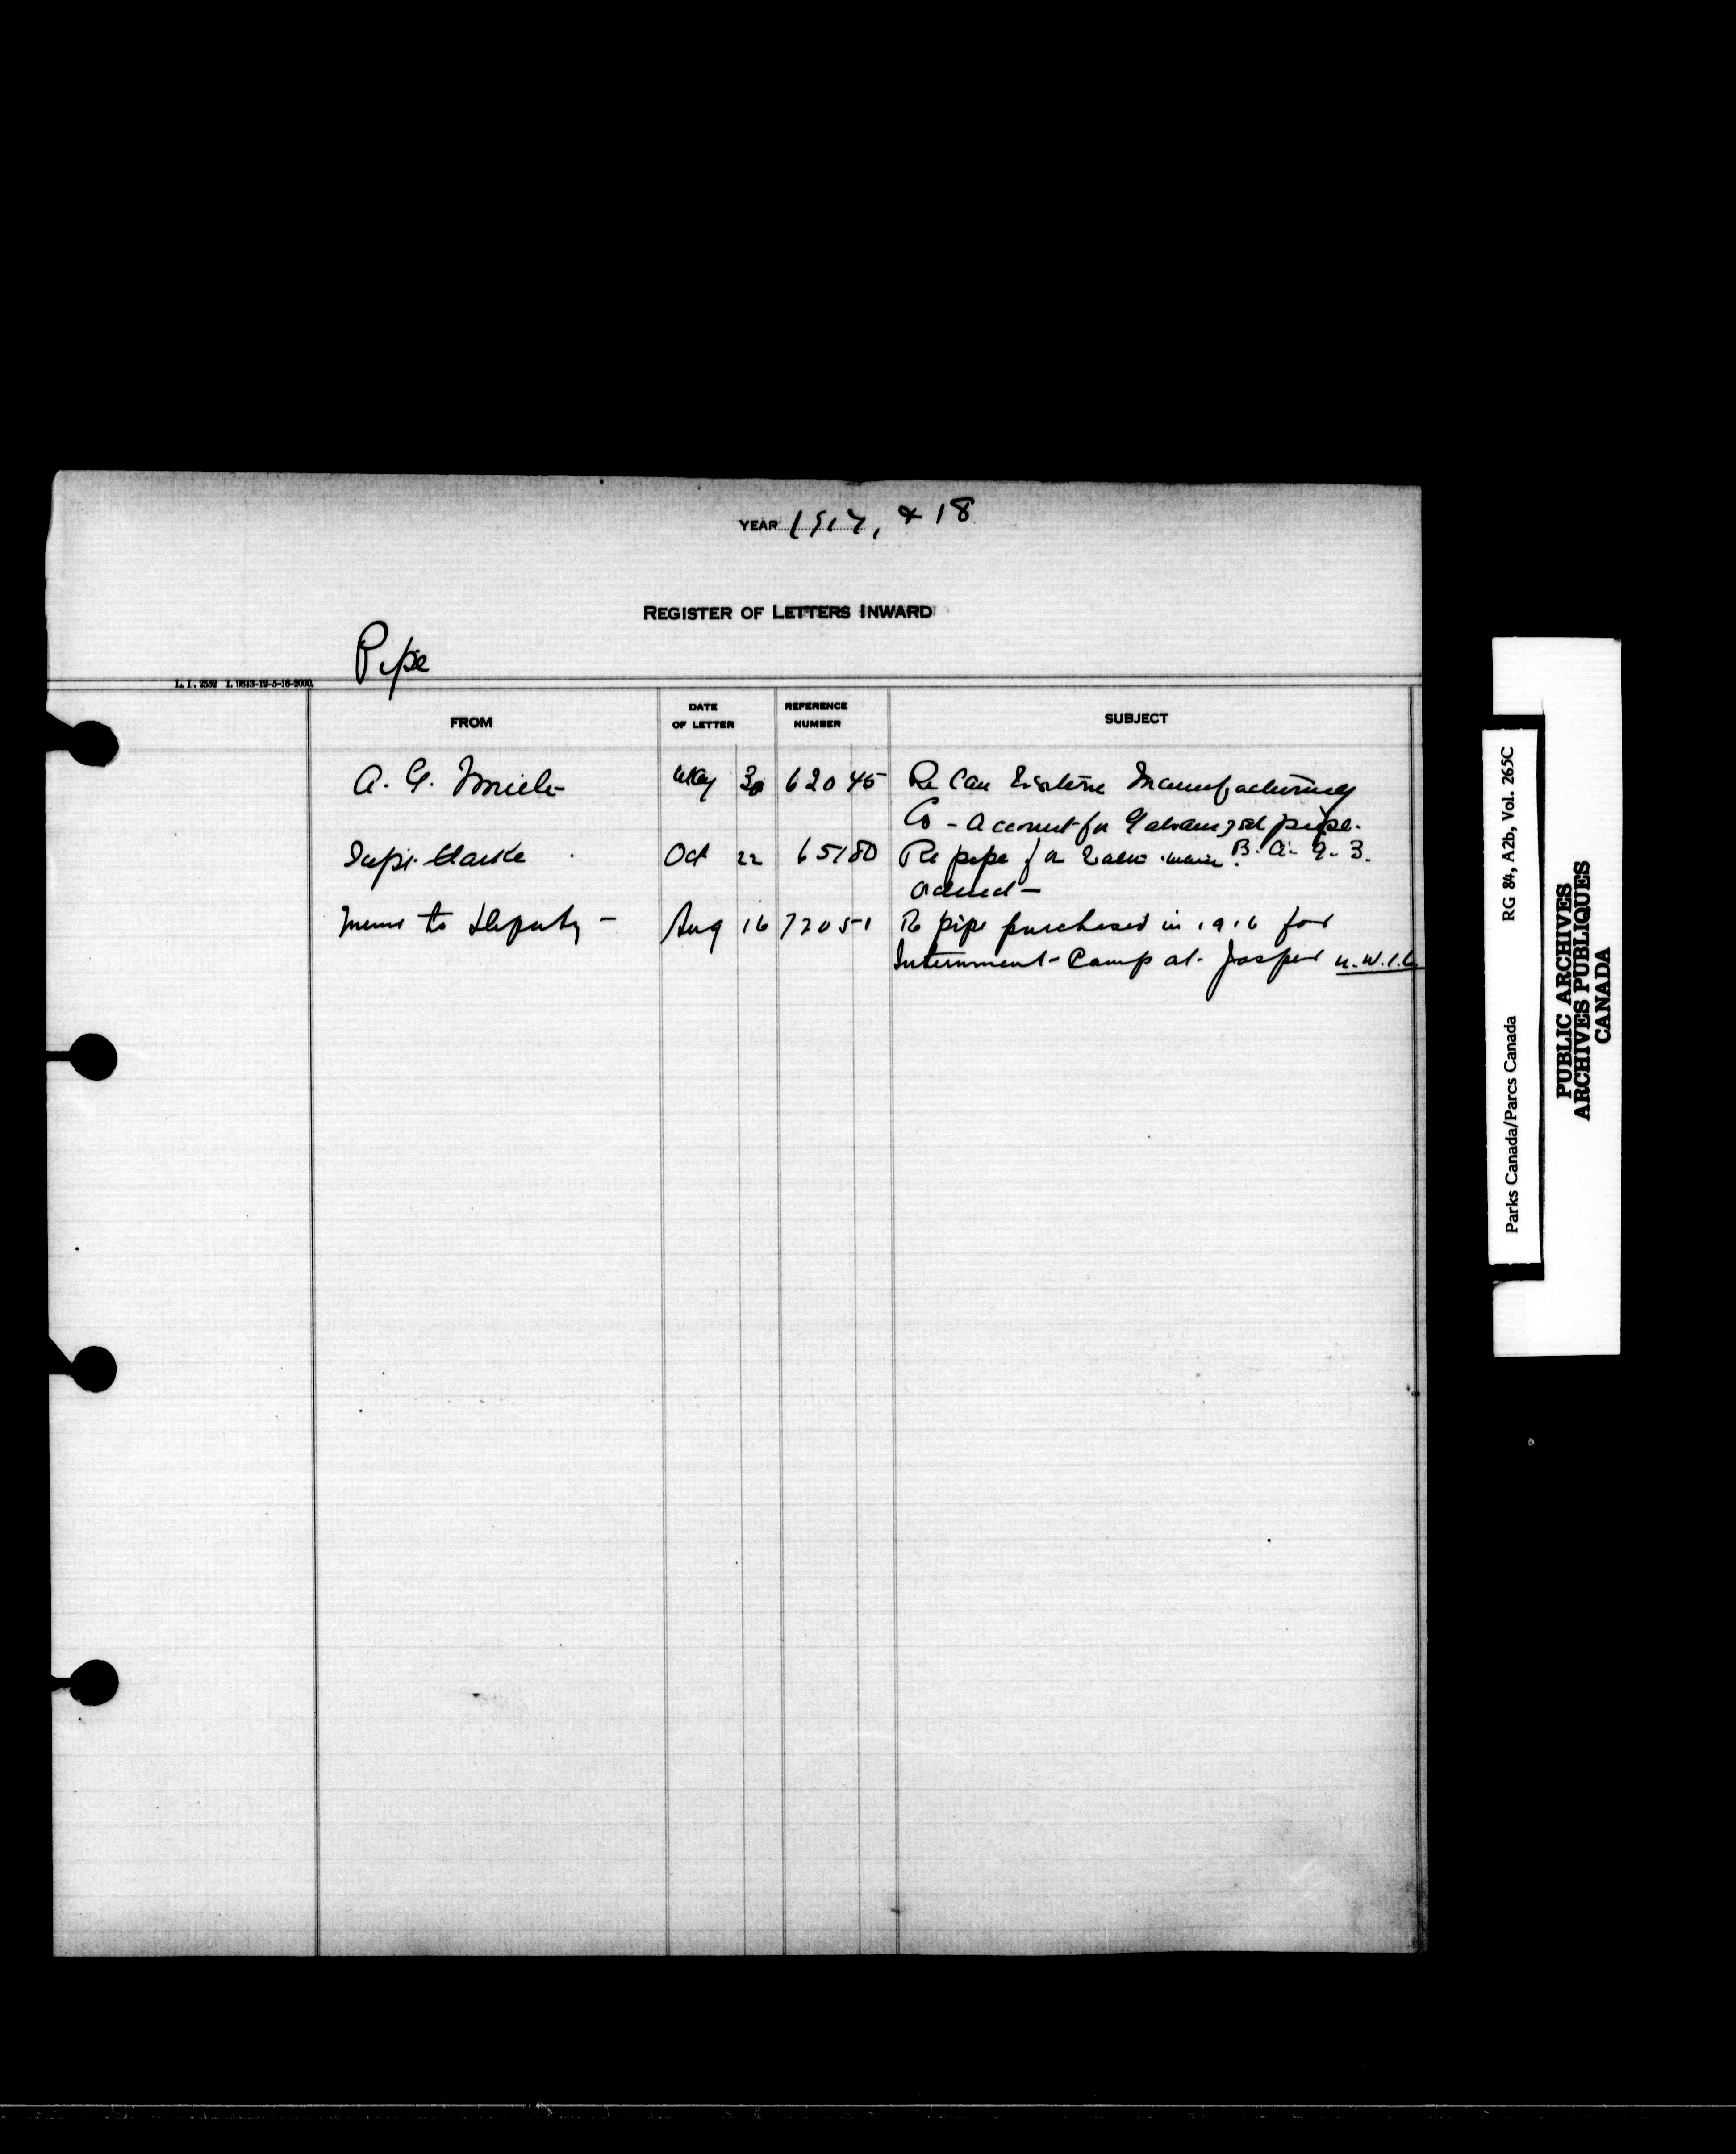 YEAR 1917, & 18
REGISTER OF LETTERS INWARD
Pipe
L. I. 2552 I. 9843-12-5-16-2000.
FROM DATE OF LETTER REFERENCE NUMBER SUBJECT
A. G. May 30 62045 Re Can Manufacturing
Co - Account for Galvanized pipe.
Supt. Clarke Oct 22 65180 Re pipe for main. B. A.
ordered -
Memo to Deputy - Aug 16 72051 Re pipe purchased in 1916 for
Internment Camp at Jasper
RG 84, A2b, Vol. 265C
Parks Canada/Parcs Canada
PUBLIC ARCHIVES
ARCHIVES PUBLIQUES
CANADA